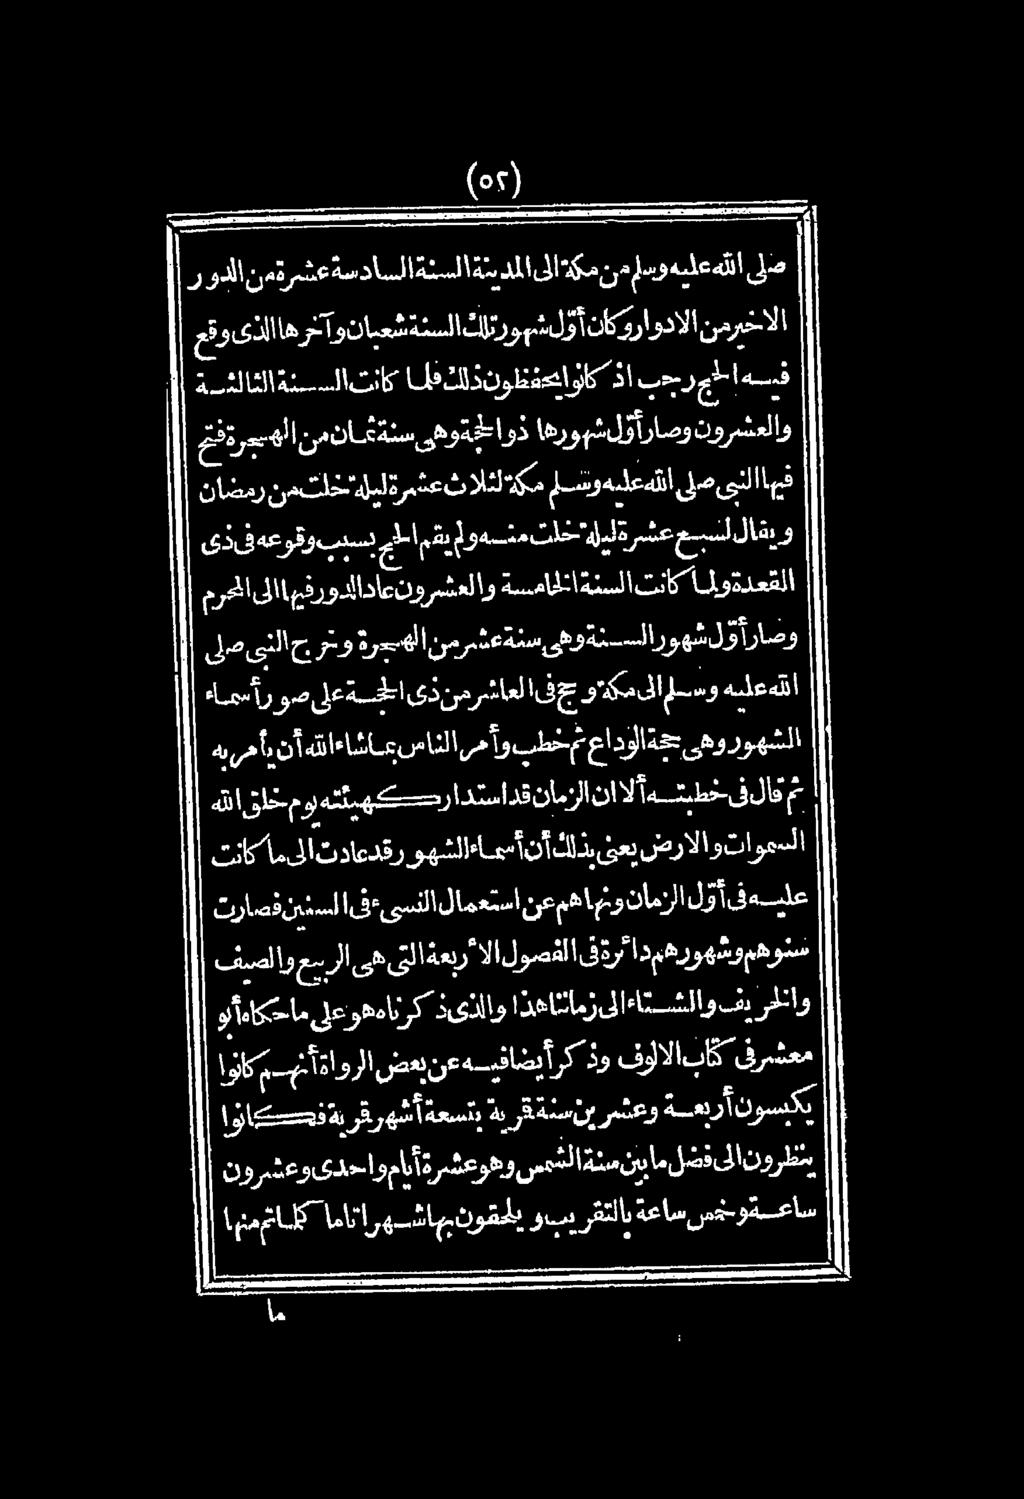 (٥٢)
صلى الله عليه وسلم من مكة الى المدينة السنة السادسة عشرة من الدور
الاخير من الادوار وكان أوّل شهور تلك السنة شعبان وآخرها الذى وقع
فيه الحج رجب اذ كانوا يحفظون ذلك فلما كانت السنة الثالثة
والعشرون وصار أوّل شهورها ذوالحجة وهى سنة ثمان من الهجرة فتح
فيها النبى صلى الله عليه وسلم مكة لثلاث عشرة ليلة خلت من رمضان
ويقال لسبع عشرة ليلة خلت منه ولم يقم الحج بسبب وقوعه فى ذى
القعدة ولما كانت السنة الخامسة والعشرون عاد الدور فيها الى المحرم
وصار أوّل شهور السنة وهى سنة عشر من الهجرة وخرج النبى صلى
الله عليه وسلم الى مكة وحج فى العاشر من ذى الحجة على صور أسماء
الشهور وهى حجة الوداع ثم خطب وأمر الناس بما شاء الله أن يأمر به
ثم قال فى خطبته ألا ان الزمان قد استدار كهيئته يوم خلق الله
السموات والارض يعنى بذلك أن أسماء الشهور قد عادت الى ما كانت
عليه فى أوّل الزمان ونهاهم عن استعمال النسىء فى السنين فصارت
سنوهم وشهورهم دائرة فى الفصول الأربعة التى هى الربيع والصيف
والخريف والشتاء الى زماننا هذا والذى ذكرناه هو على ما حكاه أبو
معشر فى كتاب الالوف وذكر أيضا فيه عن بعض الرواة أنهم كانوا
يكبسون أربعة وعشرين سنة قرية بتسعة أشهر قرية فكانوا
ينظرون الى فضل ما بين سنة الشمس وهو عشرة أيام واحدى وعشرون
ساعة وخمس ساعة بالتقريب ويلحقون بها شهرا تاما كلما تم منها
ما